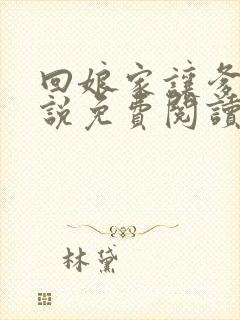 回娘家讓爹
說免費閱讀
林黛